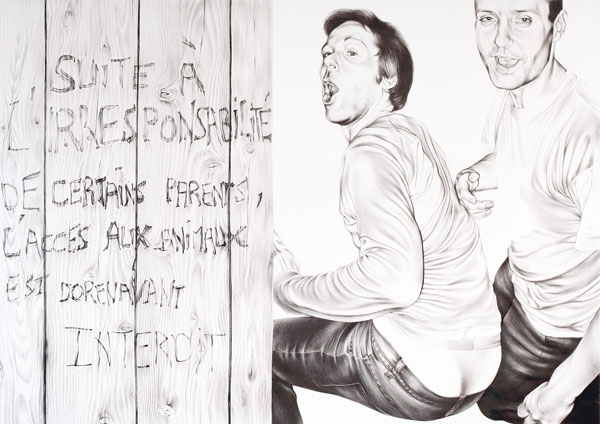 SUITE À
L'IRRESPONSABILITÉ
DE CERTAINS PARENTS,
L'ACCÈS AUX ANIMAUX
EST DORÉNAVANT
INTERDIT